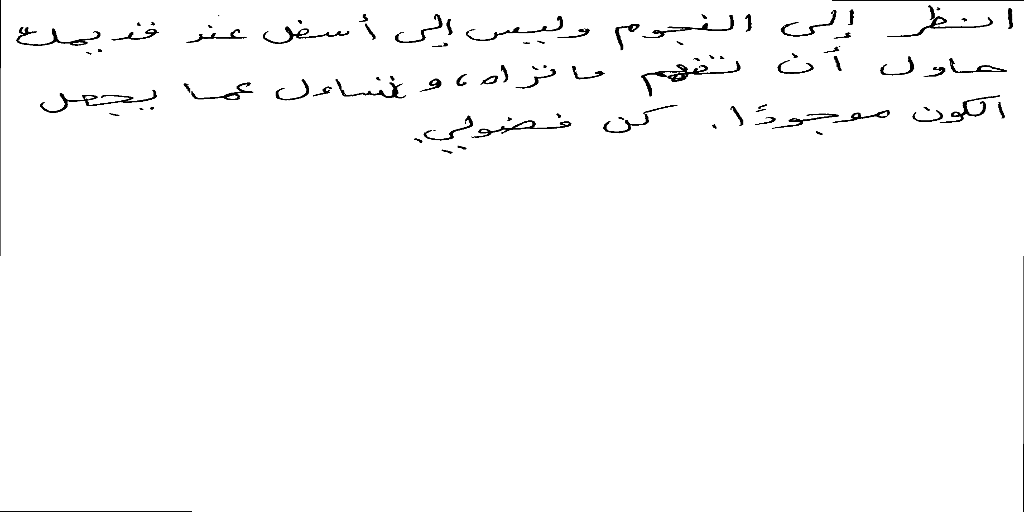 انظر إلى النجوم وليس إلى أسفل عند قدميك
حاول أن تفهم ما تراه، و تتساءل عما يجعل
الكون موجودًا. كن فضولي.